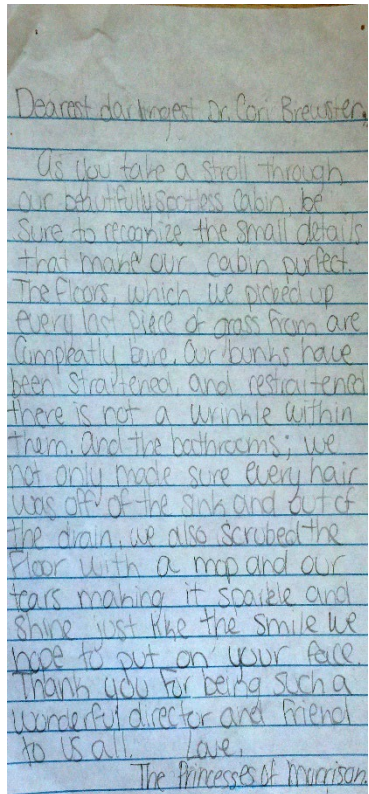 Dearest darlingest Dr. Cori Brewster,
As you take a stroll through
our beautifully spotless cabin, be
sure to recognize the small details
that make our cabin purfect.
The floors, which we picked up
every last piece of grass from are
Compleatly bare. Our bunks have
been straitened and restraitened
there is not a wrinkle within
them. And the bathrooms; we
not only made sure every hair
was off of the sink and out of
the drain, we also scrubed the
floor with a mop and our
tears making it sparkle and
shine just like the smile we
hope to put on your face.
Thank you for being such a
wonderful director and friend
to us all. Love,
The Princesses of Morrison.